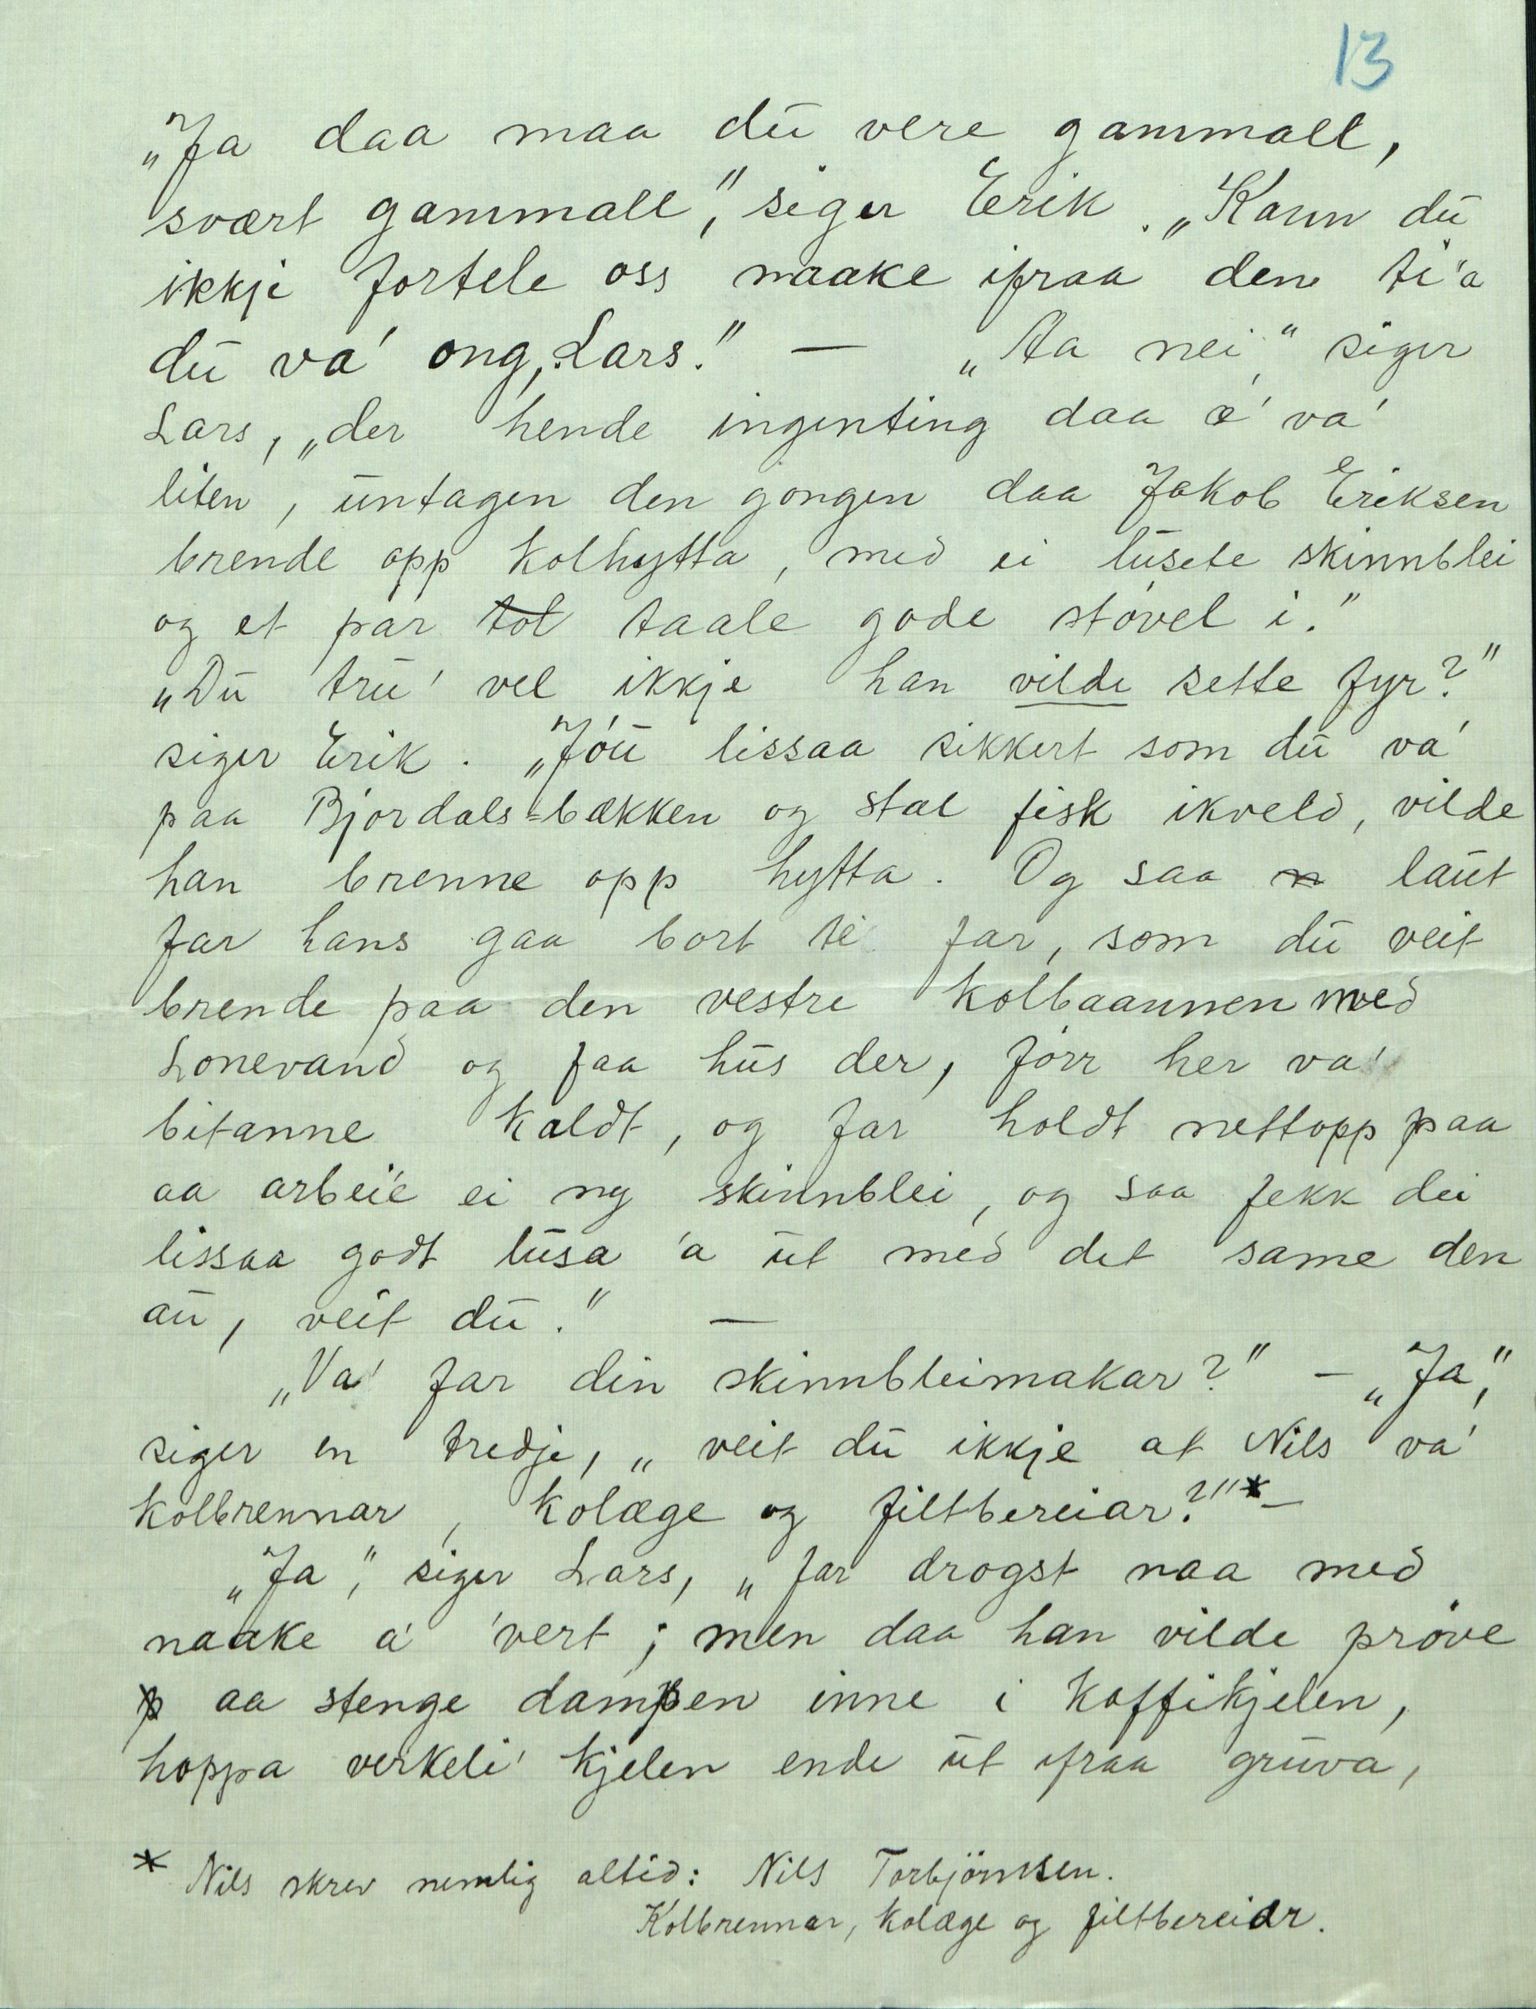 13
„Ja daa maa du vere gammall,
svært gammall," siger Erik. „Kann du
ikkje fortele oss naake ifraa den ti'a
du va' ong, Lars." —  „Aa nei," siger
Lars, „der hende ingenting daa æ' va'
liten, untagen den gongen daa Jakob Eriksen
brende opp kolhytta, med ei lusete skinnblei
og et par tol taale gode støvel i."
„Du tru' vel ikkje han vilde sette fyr?"
siger Erik. „Jóu lissaa sikkert som du va'
paa Bjordals-bækken og stal fisk ikveld, vilde
han brenne opp hytta. Og saa n laut
far hans gaa bort te far, som du veit
brende paa den vestre kolbaannen med
Lonevand og faa hus der, førr her va'
bitanne kaldt, og far holdt nettopp paa
aa arbei'e ei ny skinnblei, og saa fekk dei
lissaa godt lusa 'a ut med det same den
au, veit du." —
„Va' far din skinnbleimakar?" — „Ja,"
siger en tredje, „veit du ikkje at Nils va'
kolbrennar, kolæge og filtbereiar?"* —
„Ja," siger Lars, „far drogst naa med
naake a' 'vert; men daa han vilde prøve
p aa stenge dampen inne i kaffikjelen,
hoppa verkeli' kjelen ende ut ifraa gruva,
* Nils skrev nemlig altid: Nils Torbjörnsen.
Kolbrennar, kolæge og filtbereiar.